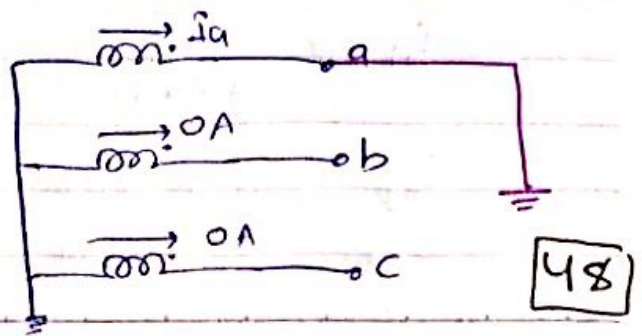 Ia
a
0A
b
0A
c
48